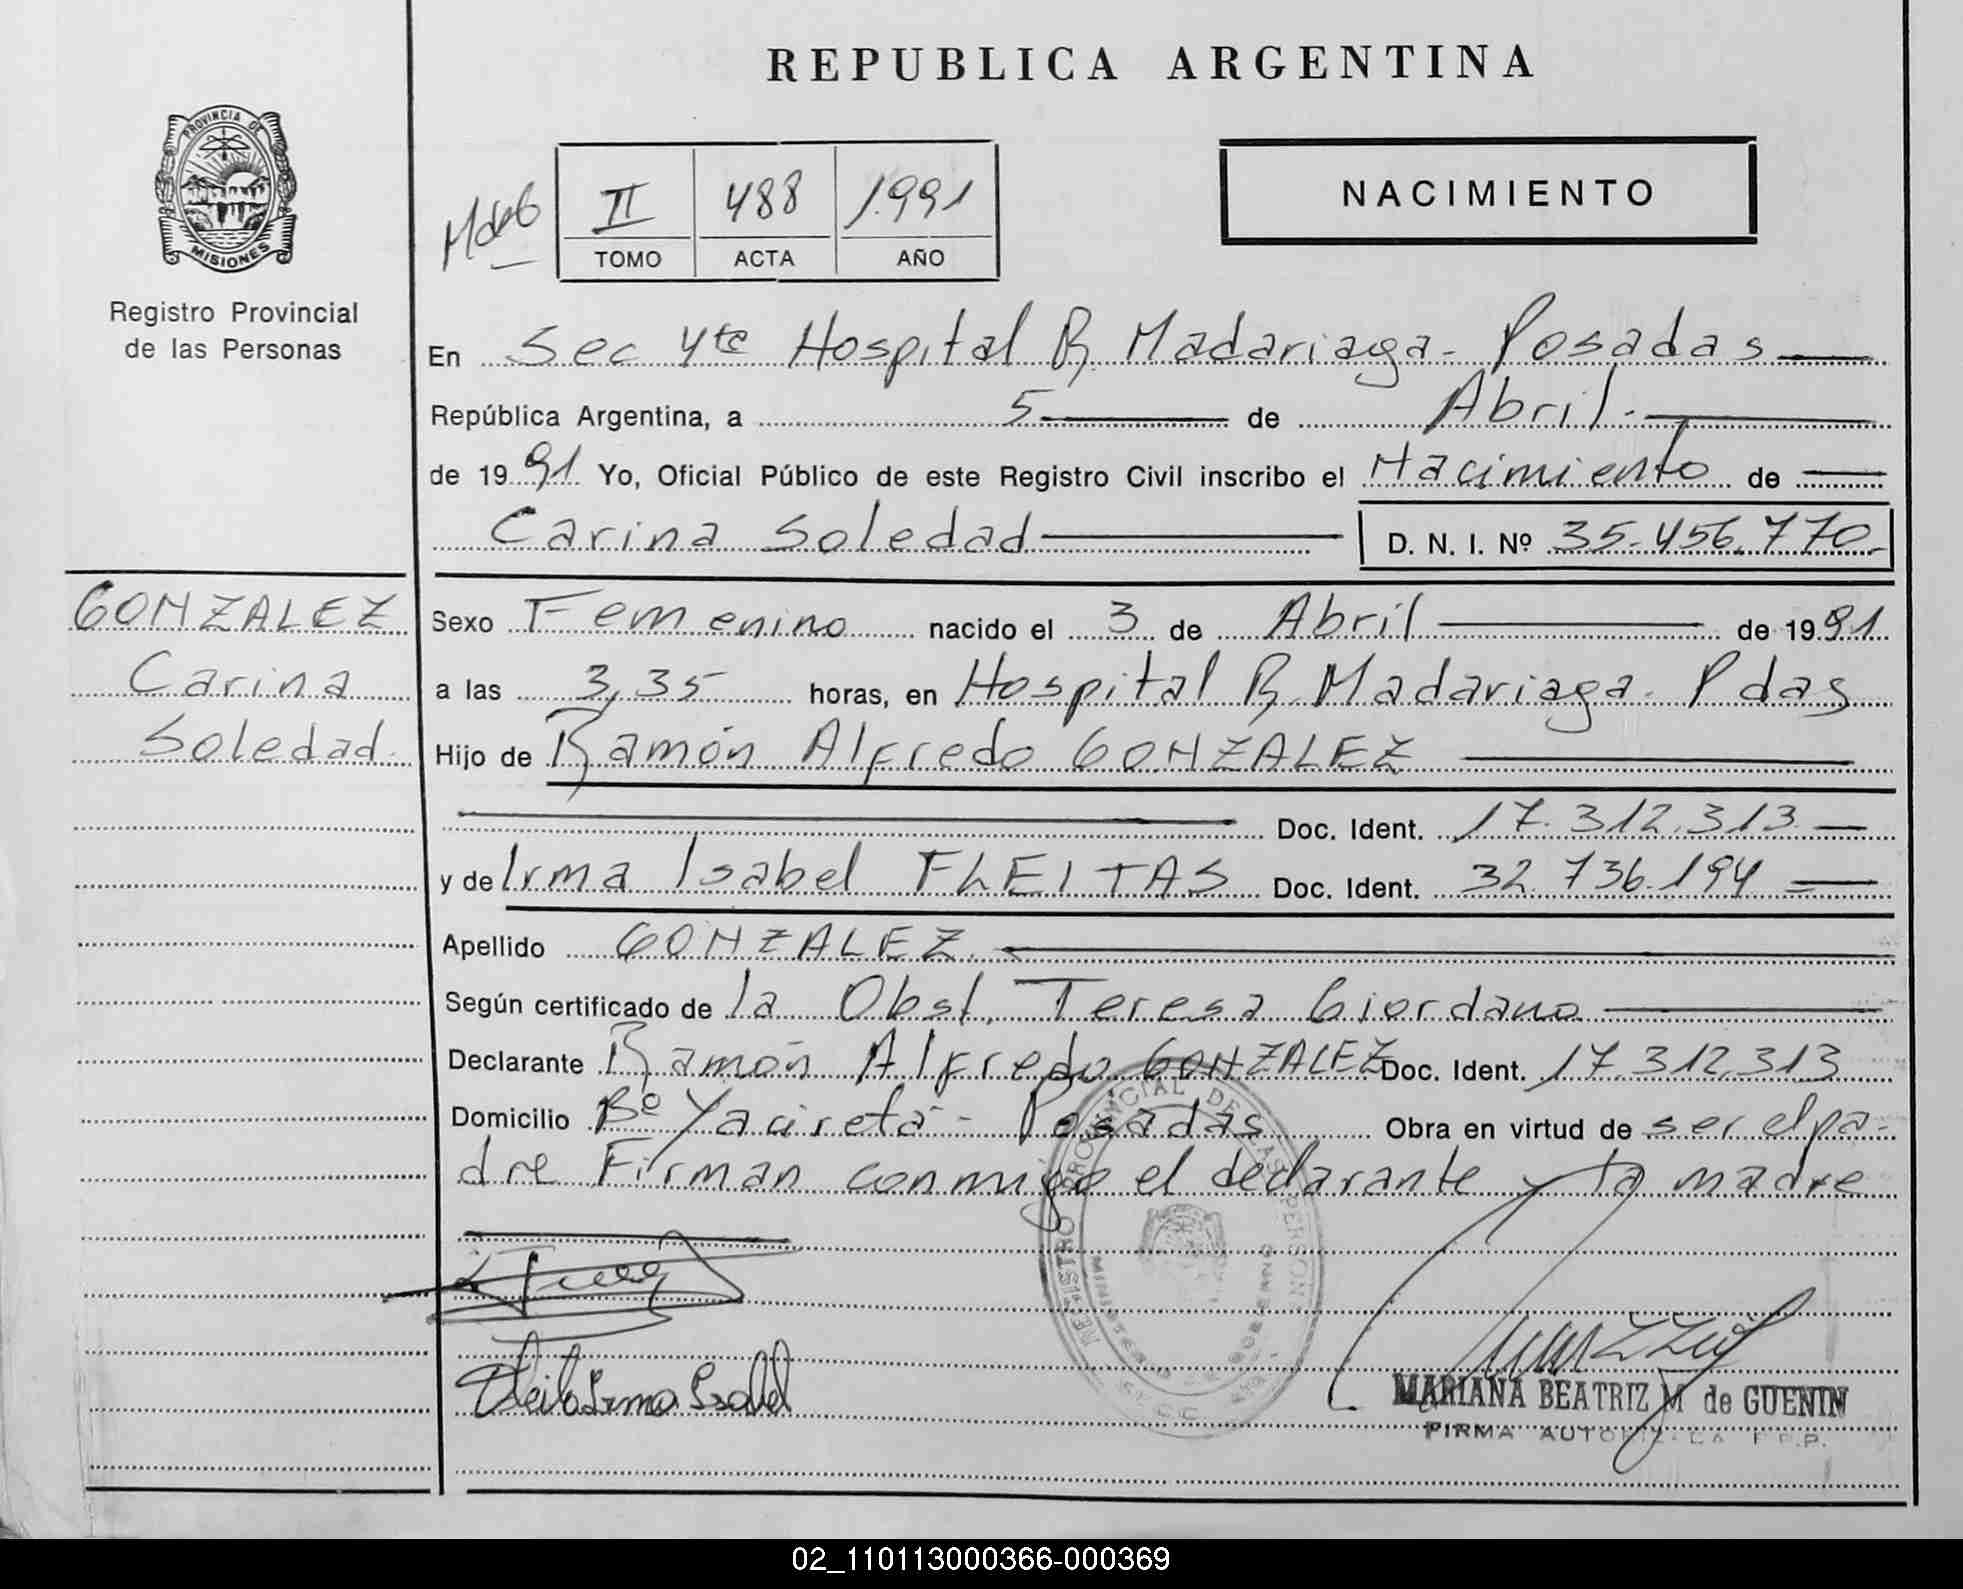 REPUBLICA ARGENTINA
PROVINCIA DE
MISIONES
Registro Provincial
de las Personas
II 488 1.991
TOMO ACTA AÑO
NACIMIENTO
En Sec 4ta Hospital R. Madariaga - Posadas
República Argentina, a 5 de Abril.
de 1991 Yo, Oficial Público de este Registro Civil inscribo el Nacimiento de
Carina Soledad D. N. I. Nº 35.456.770.
GONZALEZ
Carina
Soledad.
Sexo Femenino nacido el 3 de Abril de 1991
a las 3,35 horas, en Hospital R. Madariaga. Pdas
Hijo de Ramón Alfredo GONZALEZ
Doc. Ident. 17.312.313
y de Irma Isabel FLEITAS Doc. Ident. 32.736.194
Apellido GONZALEZ.
Según certificado de la Obst. Teresa Giordano
Declarante Ramón Alfredo GONZALEZ Doc. Ident. 17.312.313
Domicilio Bº Yaciretá - Posadas Obra en virtud de ser el pa-
dre Firman conmigo el declarante y la madre
REGISTRO PROVINCIAL DE LAS PERSONAS
MINISTERIO DE GOBIERNO
Irma Isabel
MARIANA BEATRIZ M de GUENIN
FIRMA AUTORIZADA R.P.P.
02_110113000366-000369